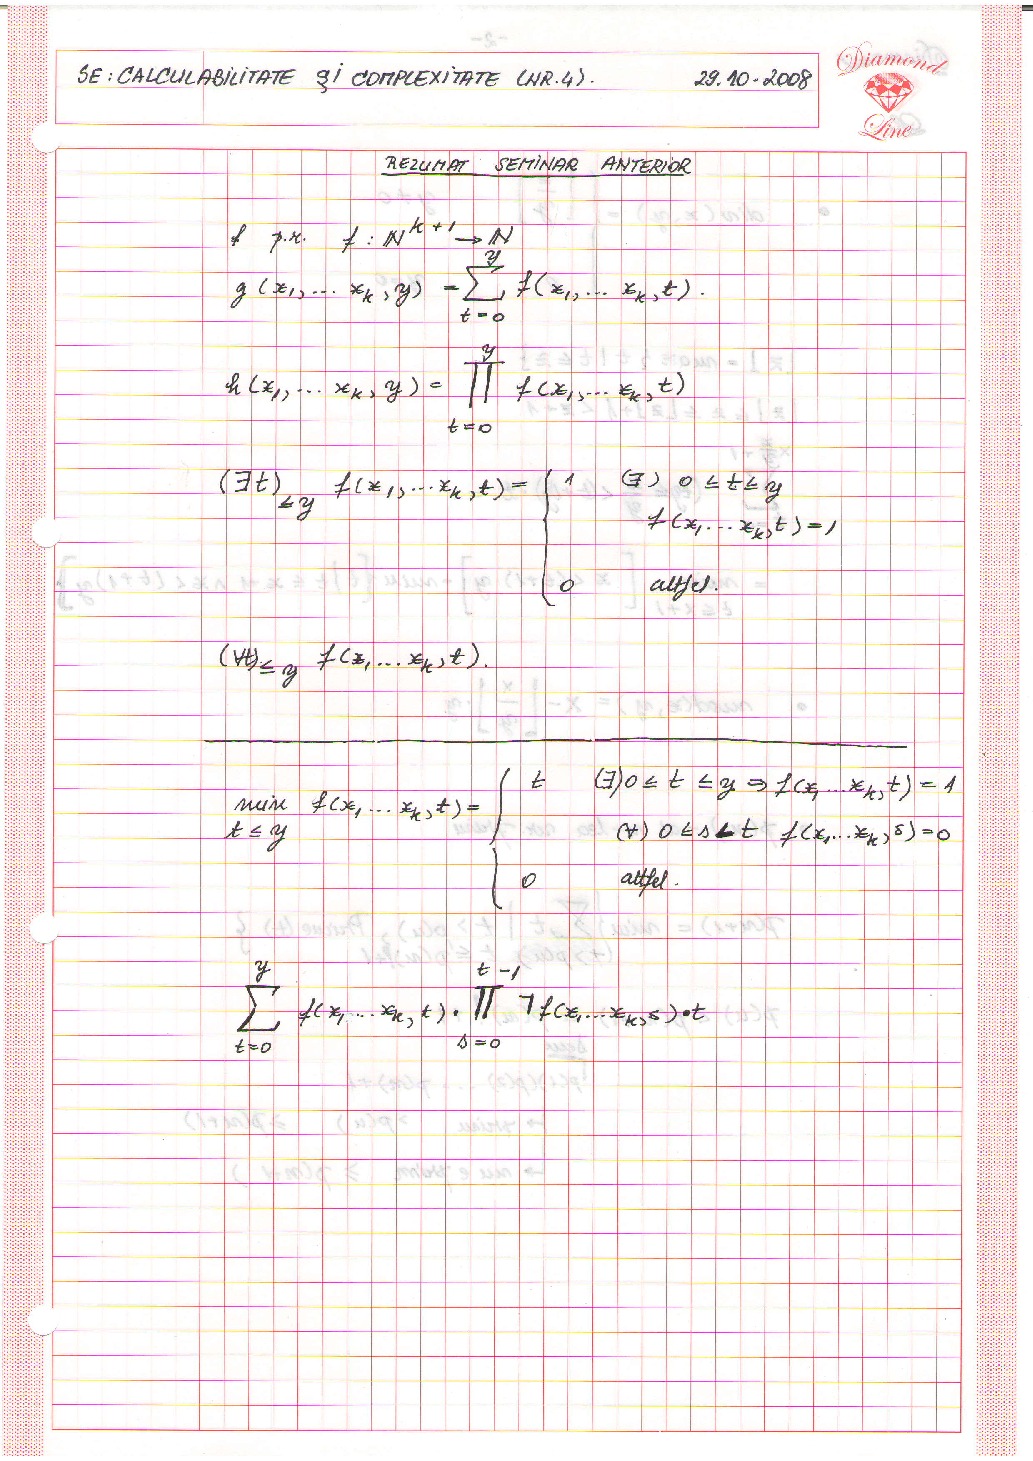 SE: CALCULABILITATE ȘI COMPLEXITATE (NR.4). 29.10-2008
Diamond
Line
REZUMAT SEMINAR ANTERIOR
f p.r. f : ℕ^{k+1} → ℕ
g(x₁,... xₖ, y) = ∑_{t=0}^{y} f(x₁,... xₖ, t).
h(x₁,... xₖ, y) = ∏_{t=0}^{y} f(x₁,... xₖ, t)
(∃t)_{≤y} f(x₁,... xₖ, t) = { 1 (∃) 0 ≤ t ≤ y
f(x₁... xₖ, t) = 1
0 altfel.
(∀t)_{≤y} f(x₁... xₖ, t).
min_{t≤y} f(x₁... xₖ, t) = { t (∃) 0 ≤ t ≤ y ⇒ f(x₁... xₖ, t) = 1
(∀) 0 ≤ s < t f(x₁... xₖ, s) = 0
0 altfel.
∑_{t=0}^{y} f(x₁... xₖ, t) · ∏_{s=0}^{t-1} ¬f(x₁... xₖ, s) · t